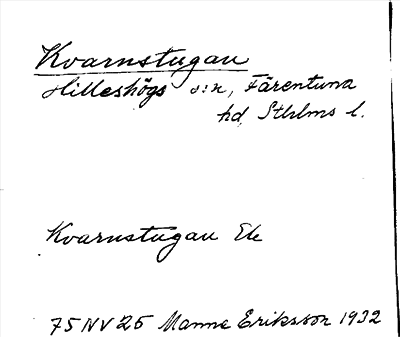 Kvarnstugan
Hilleshögs s:n, Färentuna
hd Sthlms l.
Kvarnstugan Ek
75NV25 Manne Eriksson 1932